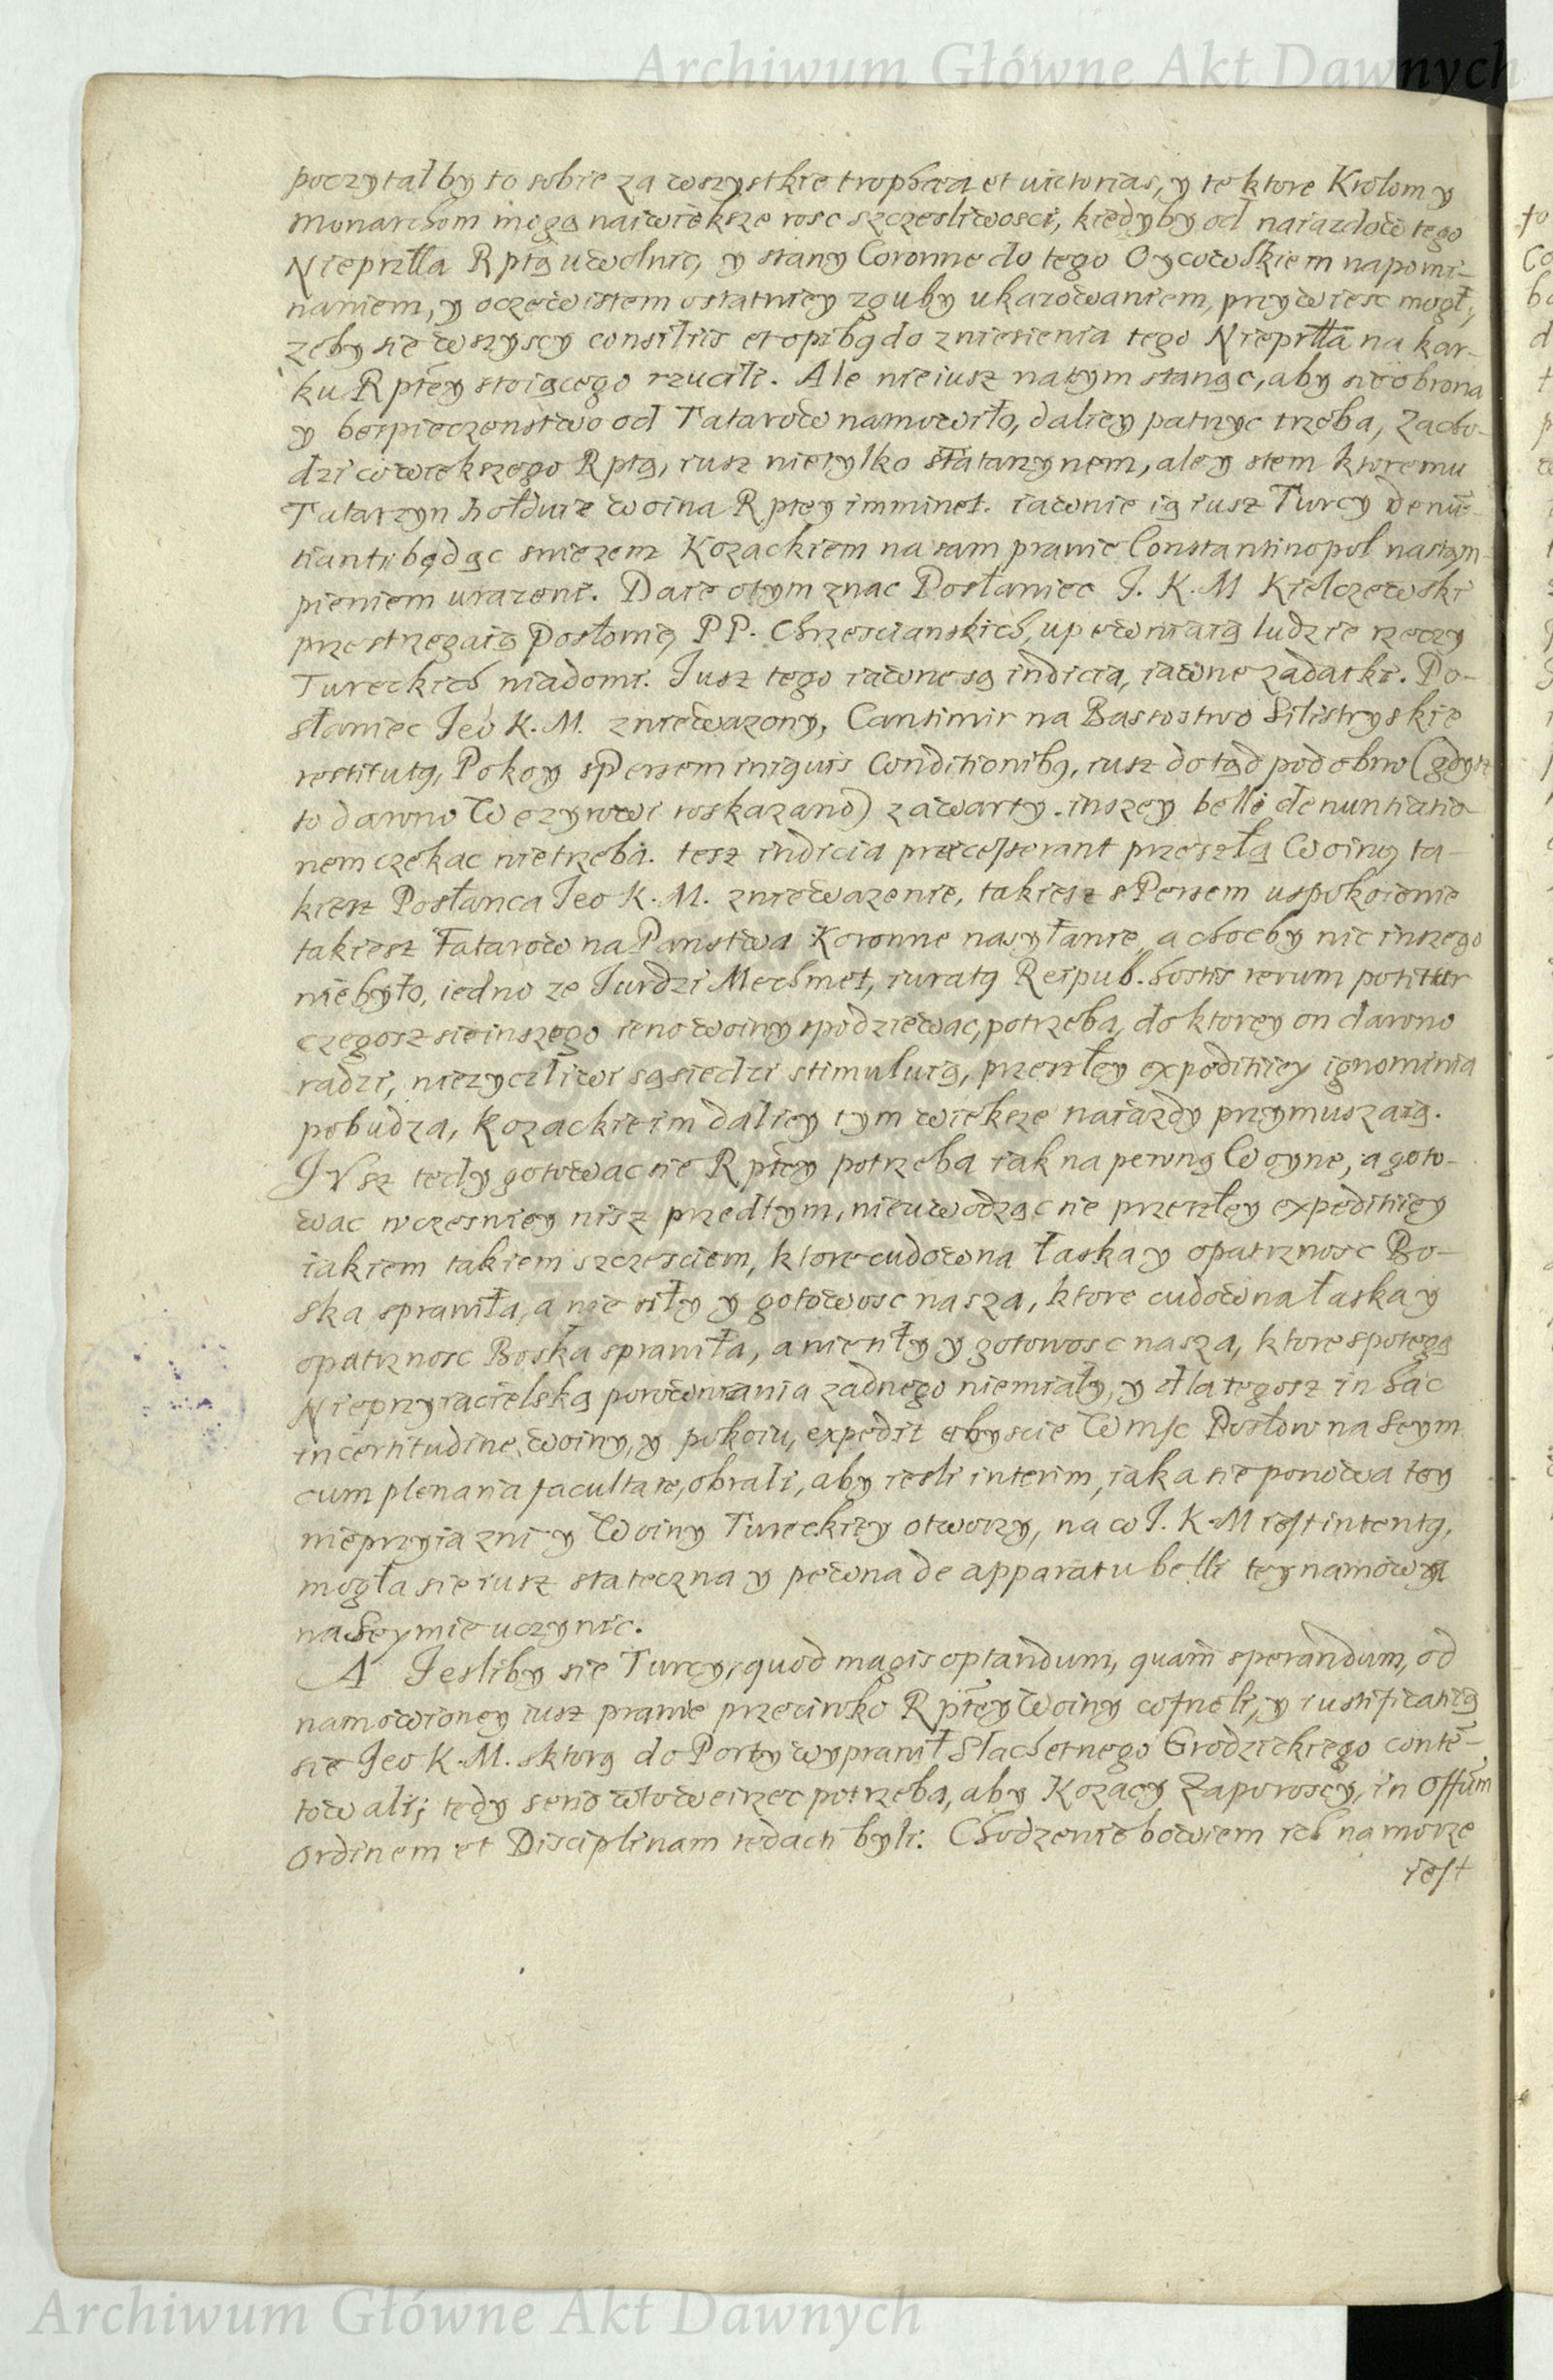 Archiwum Główne Akt Dawnych
poczytałby to sobie za wszystkie trophaea et uictorias, y te ktore Krolom y
Monarchom mogą naiwieksze rosc szczesliwosci, kiedyby od naiazdow tego
Nieprzłła Rptą uwolnic, y stany Coronne do tego Oycowskiem napomi-
naniem, y oczewistem ostatniey zguby ukazowaniem, przywiesc mogł,
zeby sie wszyscy consiliis et opibą do zniesienia tego Nieprłła na kar-
ku Rptey stoiącego rzucili. Ale nie iusz na tym stanąc, aby sie obrona
y bespieczenstwo od Tatarow namowiło, daliey patrzyc trzeba, Zacho-
dzi co wiekszego Rptą, iusz nie tylko s Tatarzynem, ale y stem ktoremu
Tatarzyn hołduie woina Rptey imminet. iawnie ią iusz Turcy denū-
tiant: bądąc smiezem Kozackiem na sam prawie Constantinopol nastąm-
pieniem urazeni. Daie o tym znac Posłaniec J. K. M Kielczewski
przestrzegaią Posłowię PP. Chrzescianskich, upewniaią ludzie rzeczy
Tureckich wiadomi. Jusz tego iawne są indicia, iawne zadatki. Po-
słaniec Jeo K. M. zniewazony, Cantimir na Bastostwo Silistryskie
restitutą, Pokoy s Persem iniquis Conditionibą, iusz dotąd podobno (gdysz
to dawno Wezyrowi roskazano) zawarty. inszey belli denuntiatio-
nem czekac nie trzeba. tesz indicia praecesserant przeszłą Woiną ta-
kiesz Posłanca Jeo K. M. zniewazenie, takiesz s Persem uspokoienie
takiesz Tatarow na Panstwa Koronne nasyłanie, a chocby nic inszego
niebyło, iedno ze Jurdzi Mechmet, iuratą Reipub. hostis rerum potitur
czegosz sie inszego ieno woiny spodziewac, potrzeba, do ktorey on dawno
radzi, niezyczliwi sąsiedzi stimuluią, przeszłey expeditiey ignominia
pobudza, Kozackie im daliey tym wieksze naiazdy przymuszaią.
JVsz tedy gotowac sie Rptey potrzeba iak na pewną Woyne, a goto-
wac wczesniey nisz przedtym, nieuwodząc sie przeszłey expeditiey
iakiem takiem szczesciem, ktore cudowna łaska y opatrznosc Bo-
ska sprawiła, a nie siły y gotowosc nasza, ktore cudowna łaska y
opatrznosc Boska sprawiła, a nie siły y gotowosc nasza, ktore s potegą
Nieprzyiacielską porownania zadnego niemiały, y dla tegosz in hac
incertitudine woiny, y pokoiu, expedit abyscie Wmsc Posłow na Seym
cum plenaria facultate, obrali, aby iesli interim, iaka sie ponowa tey
nieprzyiazni y Woiny Tureckiey otworzy, na co J. K. M iest intentą,
mogła sie iusz stateczna y pewna de apparatu belli tey namowya
na Seymie uczynic.
A Jesliby sie Turcy, quod magis optandum, quam sperandum, od
namowioney iusz prawie przeciwko Rptey Woiny cofneli, y iustificatią
sie Jeo K. M. s ktorą do Porty wyprawił Slachetnego Grodzickiego conte-
towali; tedy serio wto weirzec potrzeba, aby Kozacy Zaporoscy, in Offūm
Ordinem et Disciplinam redacti byli. Chodzenie bowiem ich na morze
iest
Archiwum Główne Akt Dawnych